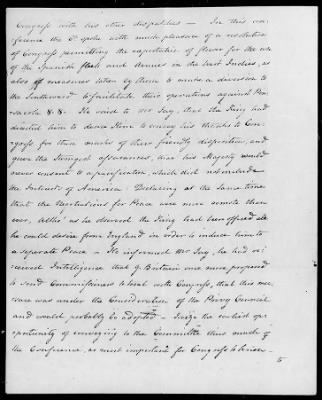 Congress with his other dispatches — In this con-
ference the Ct spoke with much pleasure of a resolution
of Congress permitting the exportation of flower for the use
of the Spanish fleet and Armies in the West Indies, as
also of measures taken by them to make a diversion to
the Southward to facilitate their operations against Pen-
sacola &.&. He said to Mr Jay, that the King had
directed him to desire him to convey his thanks to Con-
gress for these marks of their friendly disposition, and
give the strongest assurances, that his Majesty would
never consent to a pacification, which did not include
the Interests of America: Declaring at the same time
that the Negotiations for Peace were more remote than
ever, Altho' as he observed the King had been offered all
he could desire from England in order to induce him to
a separate Peace — He informed Mr Jay, he had re-
ceived Intelligence that G Britain once more proposed
to send Commissioners to treat with Congress, that this mea-
sure was under the Consideration of the Privy Council
and would probably be adopted — I seize the earliest op-
portunity of conveying to the Committee thus much of
the Conference, as most important for Congress to be